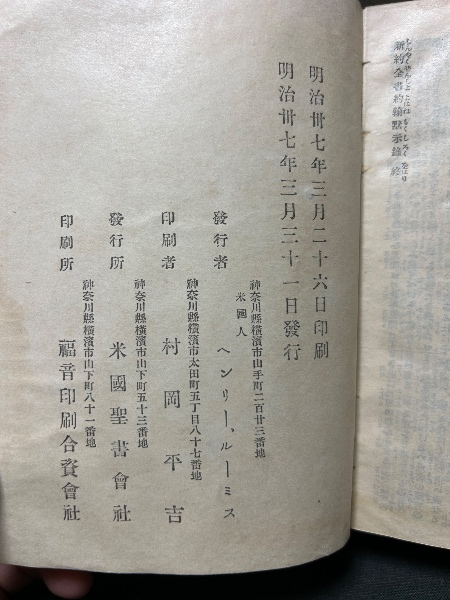 新約全書約翰默示錄 終
しんやくぜんしよよはねもくしろく をはり
明治卅七年三月二十六日印刷
明治卅七年三月三十一日發行
神奈川縣橫濱市山手町二百廿三番地
米國人
發行者 ヘンリー、ルーミス
神奈川縣橫濱市太田町五丁目八十七番地
印刷者 村岡平吉
神奈川縣橫濱市山下町五十三番地
發行所 米國聖書會社
神奈川縣橫濱市山下町八十一番地
印刷所 福音印刷合資會社